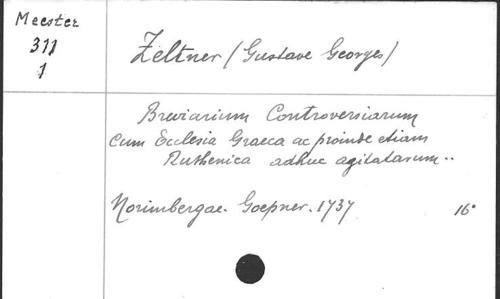 Meester
311
1
Zeltner (Gustave Georges)
Breviarium Controversiarum
cum Ecclesia Graeca ac proinde etiam
Ruthenica adhuc agitatarum..
Norimbergae. Goepner. 1737 16°